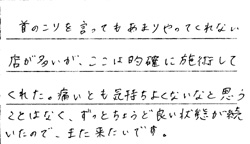 首のこりを言ってもあまりやってくれない
店が多いが、ここは的確に施術して
くれた。痛いとも気持ちよくないなと思う
ことはなく、ずっとちょうど良い状態が続
いたので、また来たいです。